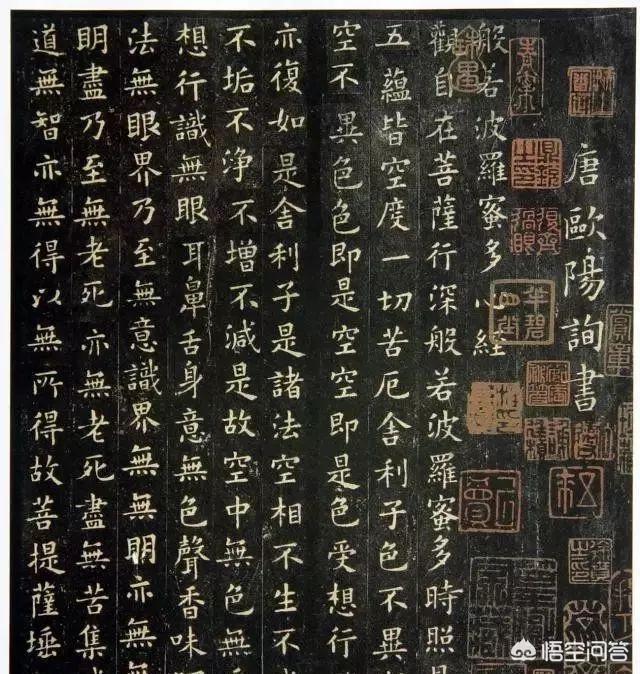 唐歐陽詢書
般若波羅蜜多心經
觀自在菩薩行深般若波羅蜜多時照
五蘊皆空度一切苦厄舍利子色不異
空不異色色即是空空即是色受想行
亦復如是舍利子是諸法空相不生不
不垢不淨不增不減是故空中無色無
想行識無眼耳鼻舌身意無色聲香味
法無眼界乃至無意識界無無明亦無
明盡乃至無老死亦無老死盡無苦集
道無智亦無得以無所得故菩提薩埵
悟空问答